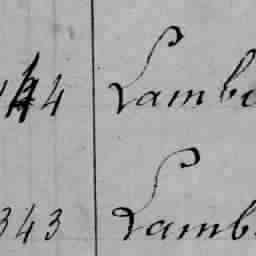 144 Lambe
343 Lamb